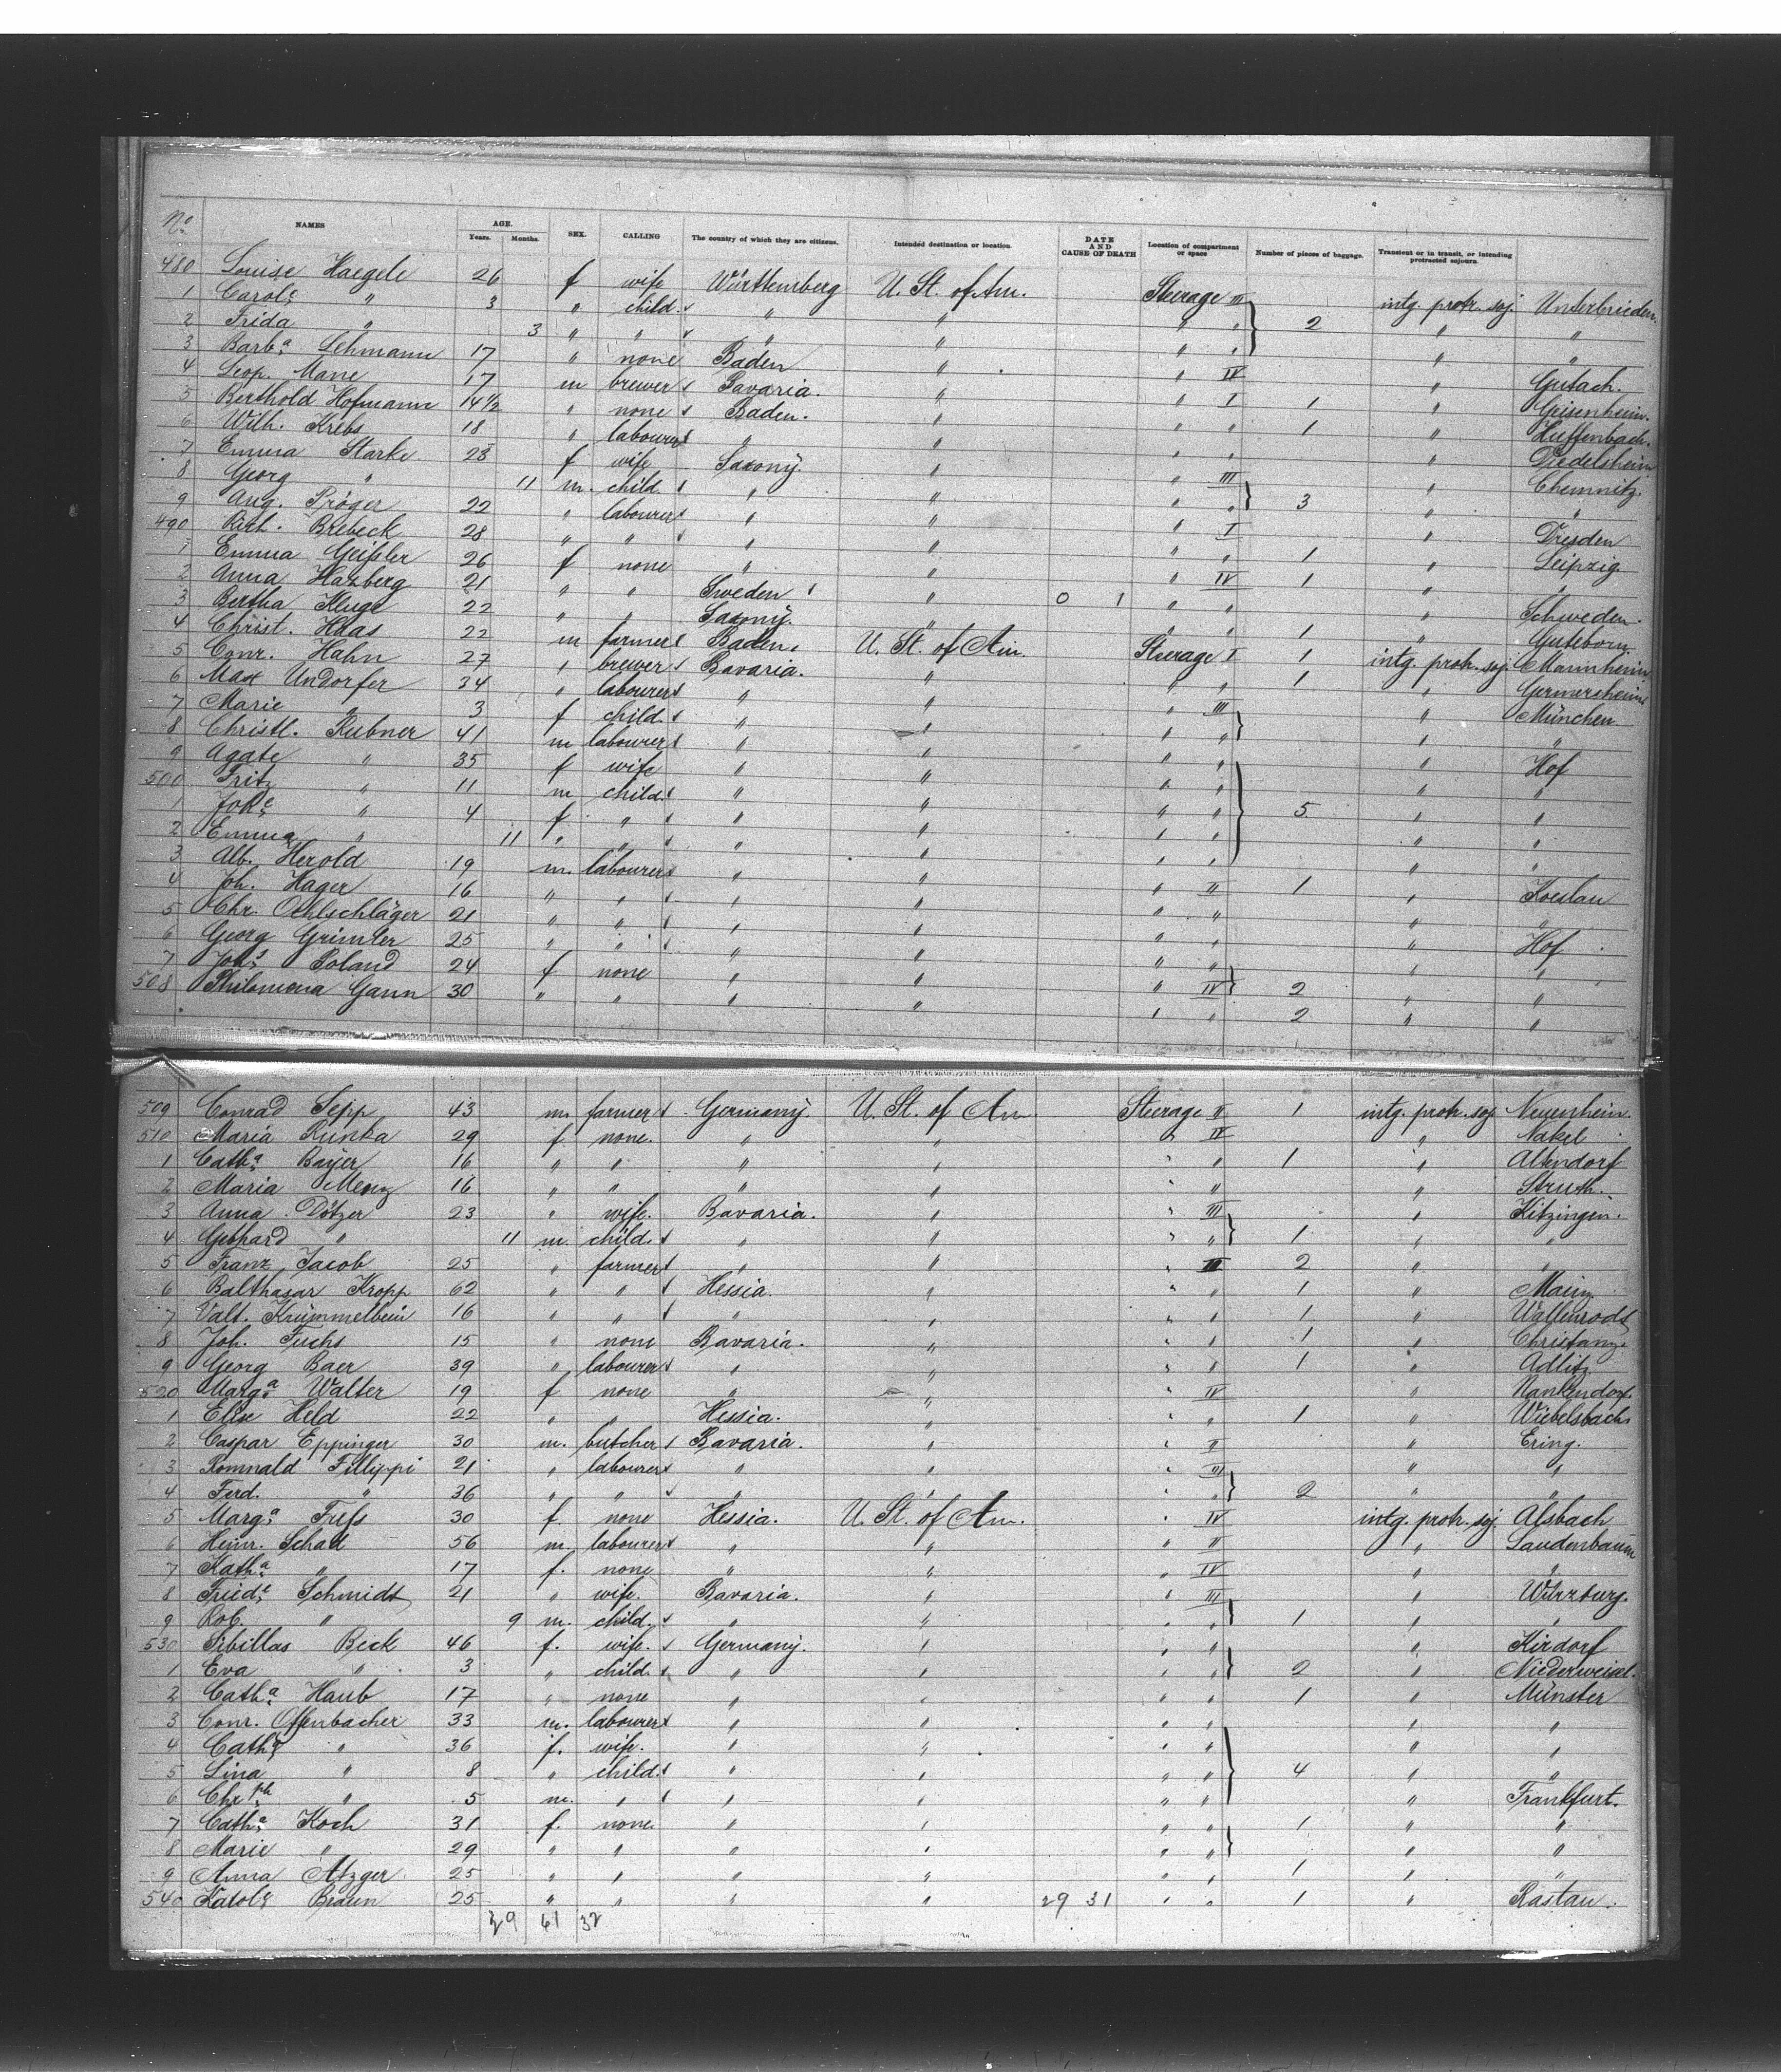 No NAMES AGE. Years. Months. SEX. CALLING The country of which they are citizens. Intended destination or location. DATE AND CAUSE OF DEATH Location of compartment or space Number of pieces of baggage. Transient or in transit, or intending protracted sojourn.
480 Louise Haegele 26 f wife Württemberg U. St. of Am. Steerage III intg. protr. soj. Unterbrieden.
1 Carole " 3 " child. " " " " 2 " "
2 Frida " 3 " " " " " " " "
3 Barba Lehmann 17 " none Baden " " IV " Gutach.
4 Leop. Mane 17 m brewer Bavaria. " " I 1 " Geisenheim.
5 Berthold Hofmann 14½ " none Baden. " " " 1 " Huffenbach.
6 Wilh. Krebs 18 " labourer " " " " " Diedelsheim
7 Emma Starke 28 f wife Saxony. " " III " Chemnitz.
8 Georg " 11 m. child " " " " 3 " "
9 Aug. Pröger 22 " labourer " " " I " Dresden
490 Rich. Brebeck 28 " " " " " " 1 " Leipzig
1 Emma Geißler 26 f none " " " IV 1 " "
2 Anna Hazberg 21 " " Sweden " 0 1 " " " Schweden.
3 Bertha Kluge 22 " " Saxony. " " " 1 " Guteborn.
4 Christ. Haas 22 m farmer Baden. U. St. of Am. Steerage I 1 intg. protr. soj. Mannheim
5 Conr. Hahn 27 " brewer Bavaria. " " " 1 " Germersheim
6 Max Undorfer 34 " labourer " " " III " München
7 Marie " 3 f child. " " " " " "
8 Christl. Rubner 41 m labourer " " " " " Hof
9 Agate " 35 f wife " " " " " "
500 Fritz " 11 m child. " " " " 5 " "
1 Johe " 4 f " " " " " " "
2 Emma " 11 " " " " " " " "
3 Alb. Herold 19 m. labourer " " " II 1 " Koeslau
4 Joh. Hager 16 " " " " " " " "
5 Chr. Oehlschläger 21 " " " " " " " Hof
6 Georg Grimler 25 " " " " " " " "
7 Joha Poland 24 f none " " " IV 2 " "
508 Philomena Gann 30 " " " " " " 2 " "
509 Conrad Sepp 43 m. farmer Germany. U. St. of Am. Steerage II 1 intg. protr. soj. Neuenheim.
510 Maria Runka 29 f none. " " " IV " Nakel
1 Catha Bayer 16 " " " " " " 1 " Altendorf
2 Maria Menz 16 " " " " " " " Struth.
3 Anna Dötzer 23 " wife. Bavaria. " " III " Kitzingen.
4 Gebhard " 11 m. child. " " " " 1 " "
5 Franz Jacob 25 " farmer " " " III 2 " "
6 Balthasar Kropp 62 " " Hessia. " " " 1 " Mainz.
7 Valt. Krümmelbein 16 " " " " " " 1 " Wallenrod
8 Joh. Fuchs 15 " none Bavaria. " " " 1 " Christanz.
9 Georg Baer 39 " labourer " " " " 1 " Adlitz
520 Marga Walter 19 f none " " " IV " Nankendorf.
1 Elise Held 22 " " Hessia. " " " 1 " Wiebelsbach
2 Caspar Eppinger 30 m. butcher Bavaria. " " II " Ering.
3 Romnald Fillippi 21 " labourer " " " III " "
4 Ferd. " 36 " " " " " " 2 " "
5 Marga Fuß 30 f none Hessia. U. St. of Am. " IV intg. protr. soj. Alsbach
6 Heinr. Schad 56 m labourer " " " II " Laudenbaum
7 Katha " 17 f. none " " " IV " "
8 Friede Schmidt 21 " wife. Bavaria. " " III " Würzburg.
9 Rob. " 9 m. child. " " " " 1 " "
530 Sibillas Beck 46 f. wife. Germany. " " " " Kirdorf
1 Eva " 3 " child. " " " " 2 " Niederweisel.
2 Catha Haub 17 " none " " " " 1 " Münster
3 Conr. Offenbacher 33 m. labourer " " " " " "
4 Catha " 36 f. wife. " " " " " "
5 Lina " 8 " child. " " " " 4 " "
6 Chrph " 5 m. " " " " " " Frankfurt.
7 Catha Koch 31 f. none. " " " " 1 " "
8 Marie " 29 " " " " " " " "
9 Anna Atzger 25 " " " " " " 1 " "
540 Karole Braun 25 " " " " 29 31 " " 1 " Rastau.
29 61 32